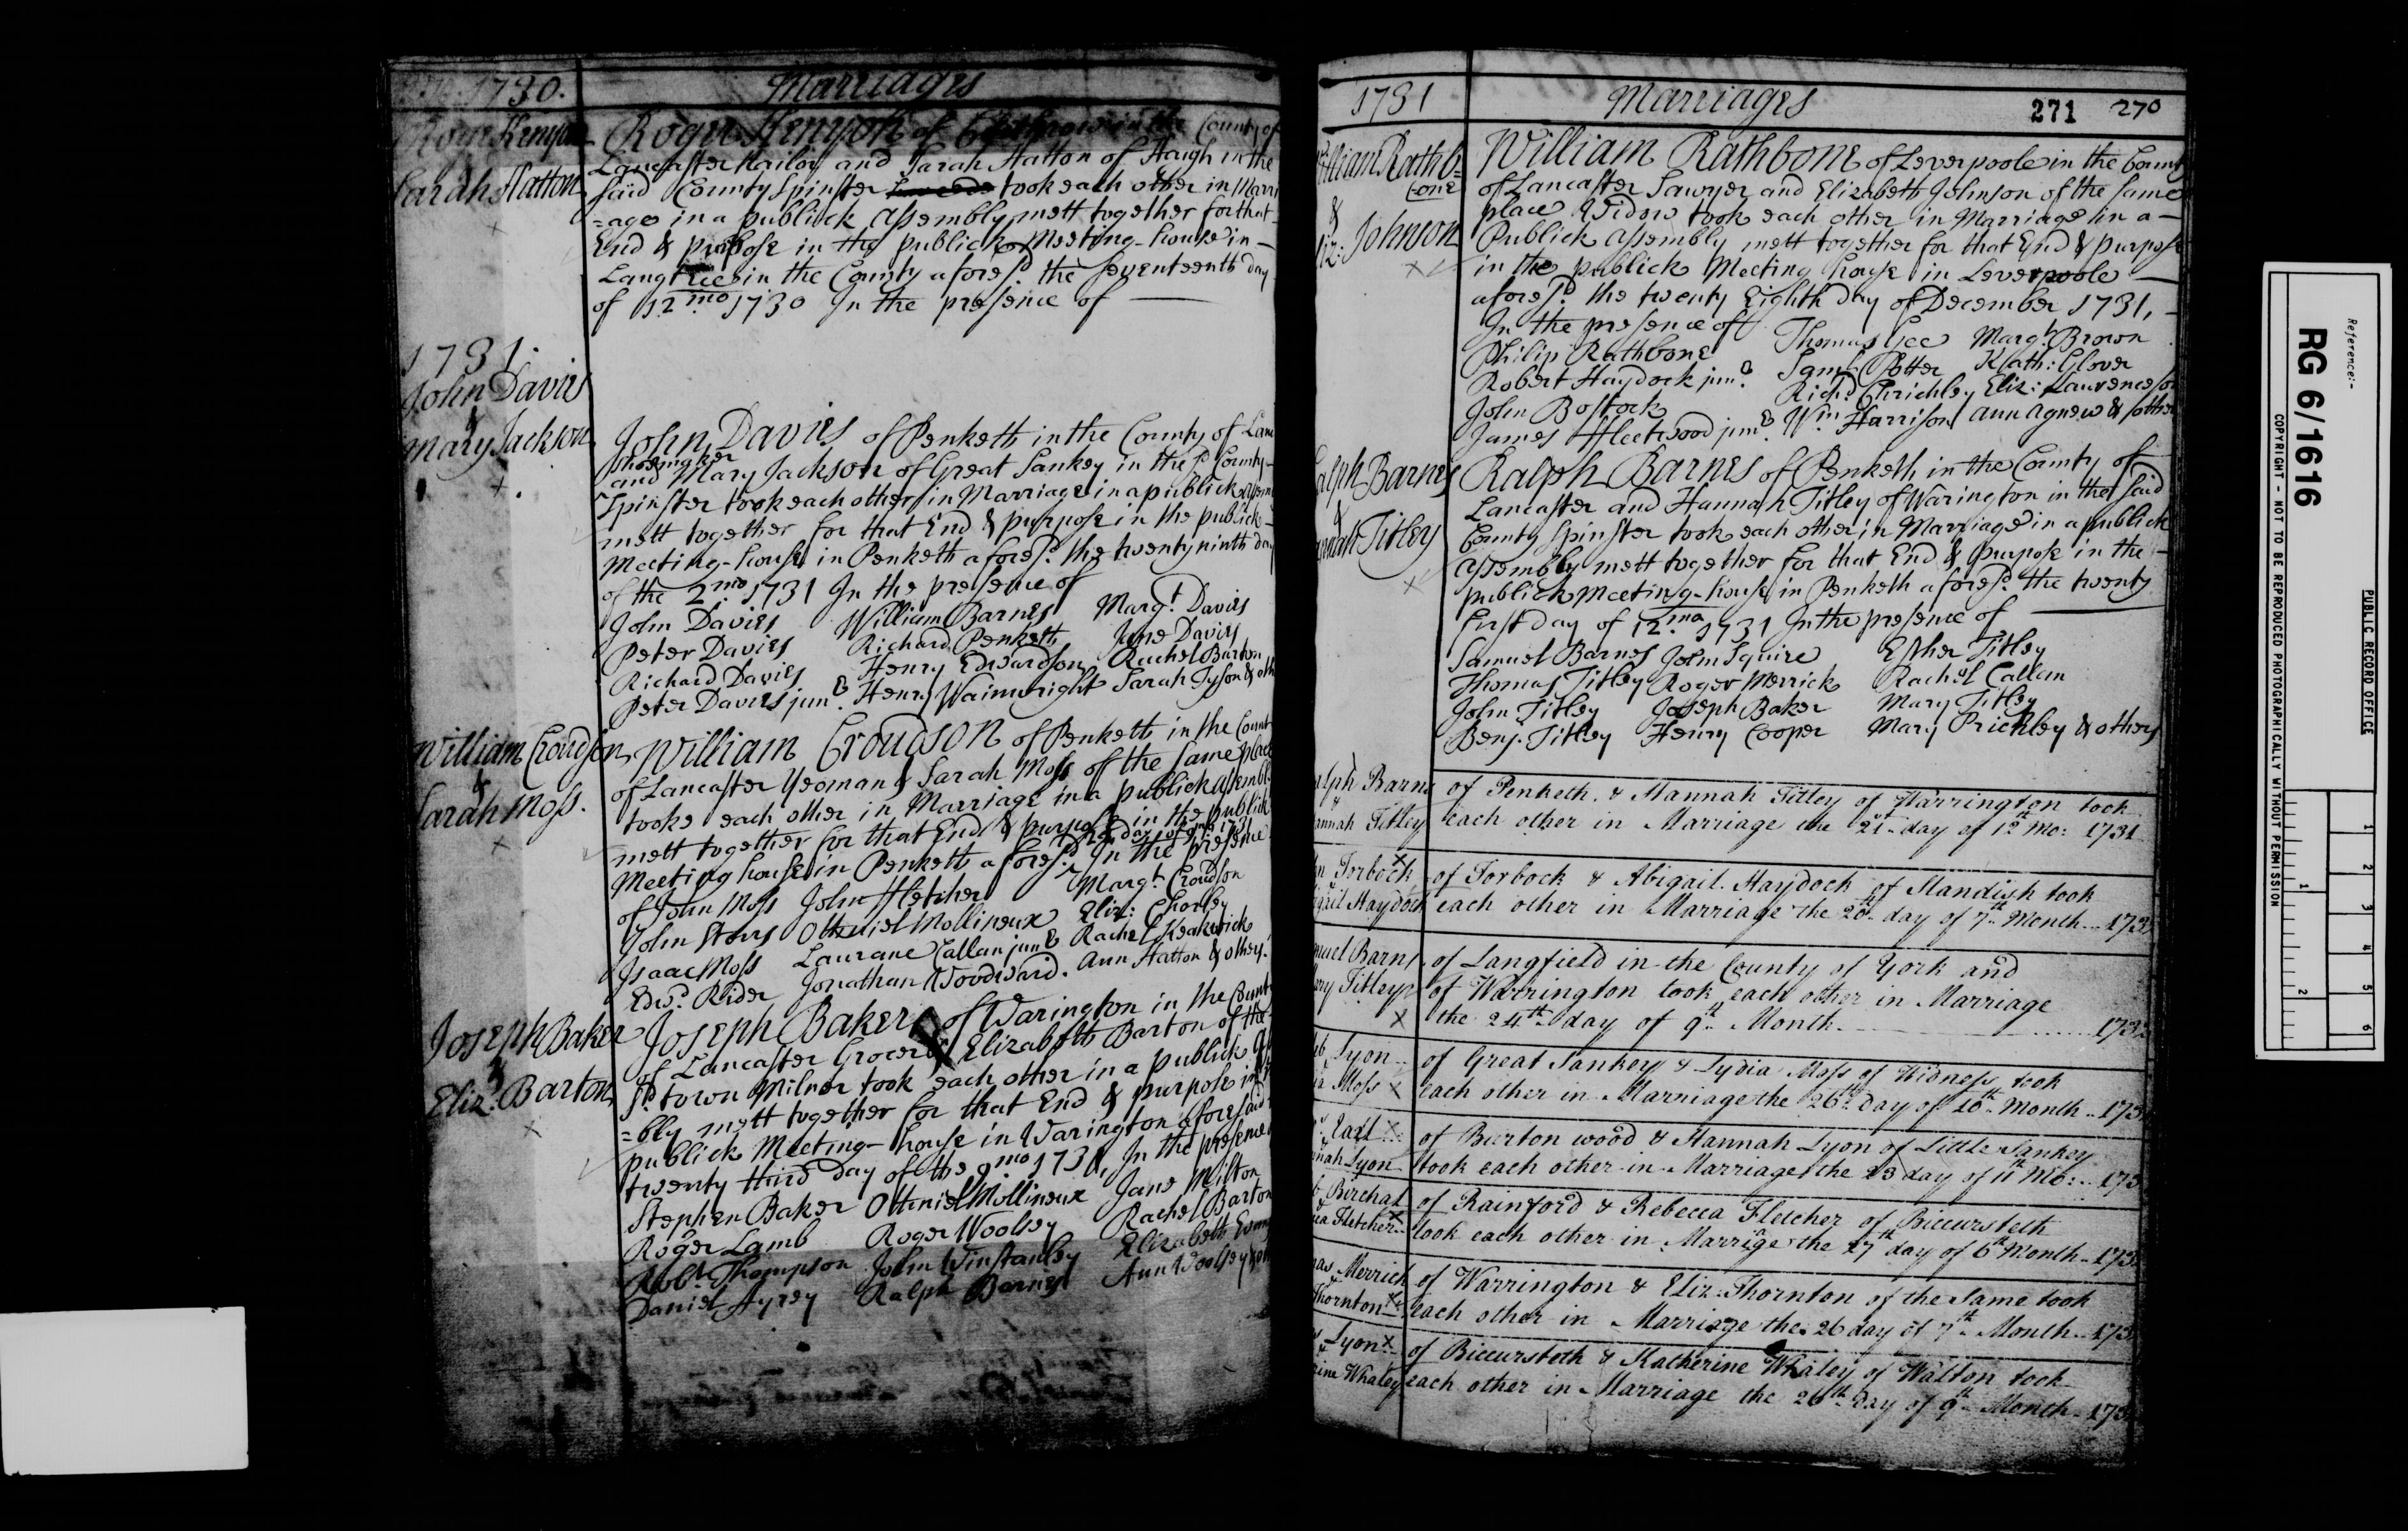 1730.
Marriages
Roger Kenyon
Sarah Hatton
Roger Kenyon of in the County of
Lancaster Nailor and Sarah Hatton of Haigh in the
said County Spinster took each other in Marri
=age in a publick Assembly mett together for that
End & purpose in the publick Meeting-house in
Langtree in the County afores.d the seventeenth day
of 12.mo 1730 In the presence of
1731.
John Davies
&
Mary Jackson
John Davies of Penketh in the County of Lanc
shoemaker
and Mary Jackson of Great Sankey in the s.d County
Spinster took each other in Marriage in a publick Assem
mett together for that End & purpose in the publick
Meeting-house in Penketh afores.d the twenty ninth day
of the 2.mo 1731 In the presence of
John Davies William Barnes Marg.t Davies
Peter Davies Richard Penketh Jane Davies
Richard Davies Henry Edwardson Rachel Barton
Peter Davies jun.r Henry Wainwright Sarah Tyson & oth
William Croudson
&
Sarah Moss.
William Croudson of Penketh in the Count
of Lancaster Yeoman & Sarah Moss of the same place
tooke each other in Marriage in a publick Assembl
mett together for that End & purpose in the publick
Meeting house in Penketh afores.d In the presence
of John Moss John Fletcher Marg.t Croudson
John Storrs Otheniel Mollineux Eliz: Chorley
Isaac Moss Laurance Callan jun.r Rachel Keakwick
Edw.d Rider Jonathan Woodward. Ann Hatton & others.
Joseph Baker
&
Eliz: Barton
Joseph Baker of Warington in the Count
of Lancaster Grocer & Elizabeth Barton of the
s.d town Milner took each other in a publick
=bly mett together for that End & purpose in
publick Meeting-house in Warington aforesaid
twenty third day of the 9mo 1731, In the presence
Stephen Baker Otheniel Mollineux Jane Milton
Roger Lamb Roger Woolsey Rachel Barton
Rob.t Thompson John Winstanley Elizabeth Evans
Daniel Ayrey Ralph Barnes Ann Woolsey
1731
Marriages
271 270
William Rathb=
bone
&
Eliz: Johnson
William Rathbone of Leverpoole in the County
of Lancaster Sawyer and Elizabeth Johnson of the same
place Widow took each other in Marriage in a
Publick Assembly mett together for that End & purpose
in the publick Meeting house in Leverpoole
afores.d the twenty Eighth day of December 1731,
In the presence of Thomas Gee Marg.t Brown
Philip Rathbone Sam.l Potter Kath: Glover
Robert Haydock jun.r Rich.d Chrichley Eliz: Laurenceson
John Bostock W.m Harrison Ann Agnew & others
James Fleetwood jun.r
Ralph Barnes
&
Hannah Titley
Ralph Barnes of Penketh in the County of
Lancaster and Hannah Titley of Warington in the said
County Spinster took each other in Marriage in a publick
Assembly mett together for that End & purpose in the
publick Meeting-house in Penketh afores.d the twenty
first day of 12.mo 1731 In the presence of
Samuel Barnes John Squire Esther Titley
Thomas Titley Roger Merrick Rachel Callan
John Titley Joseph Baker Mary Titley
Benj. Titley Henry Cooper Mary Prichley & others
alph Barnes
&
annah Titley
of Penketh. & Hannah Titley of Warrington took
each other in Marriage the 21st day of 12th Mo: 1731
n Torbock
&
igail Haydock
of Torbock & Abigail Haydock of Standish took
each other in Marriage the 20th day of 7th Month 1732
muel Barnes
ary Titley
of Langfield in the County of York and
of Warrington took each other in Marriage
the 24th day of 9th Month 1732
Lyon
Moss
of Great Sankey & Lydia Moss of Widness took
each other in Marriage the 26th day of 10th Month 173
East
nah Lyon
of Burton wood & Hannah Lyon of Little Sankey
took each other in Marriage the 23 day of 11th Mo: 173
Birchal
ca Fletcher
of Rainford & Rebecca Fletcher of Biccursteth
took each other in Marriage the 27th day of 6th Month 173
as Merrick
Thornton
of Warrington & Eliz: Thornton of the Same took
each other in Marriage the 26 day of 7th Month 173
Lyon
rine Whaley
of Biccursteth & Katherine Whaley of Walton took
each other in Marriage the 26th day of 9th Month 173
PUBLIC RECORD OFFICE
Reference:-
RG 6/1616
COPYRIGHT - NOT TO BE REPRODUCED PHOTOGRAPHICALLY WITHOUT PERMISSION
1 2 3 4 5 6
1 2